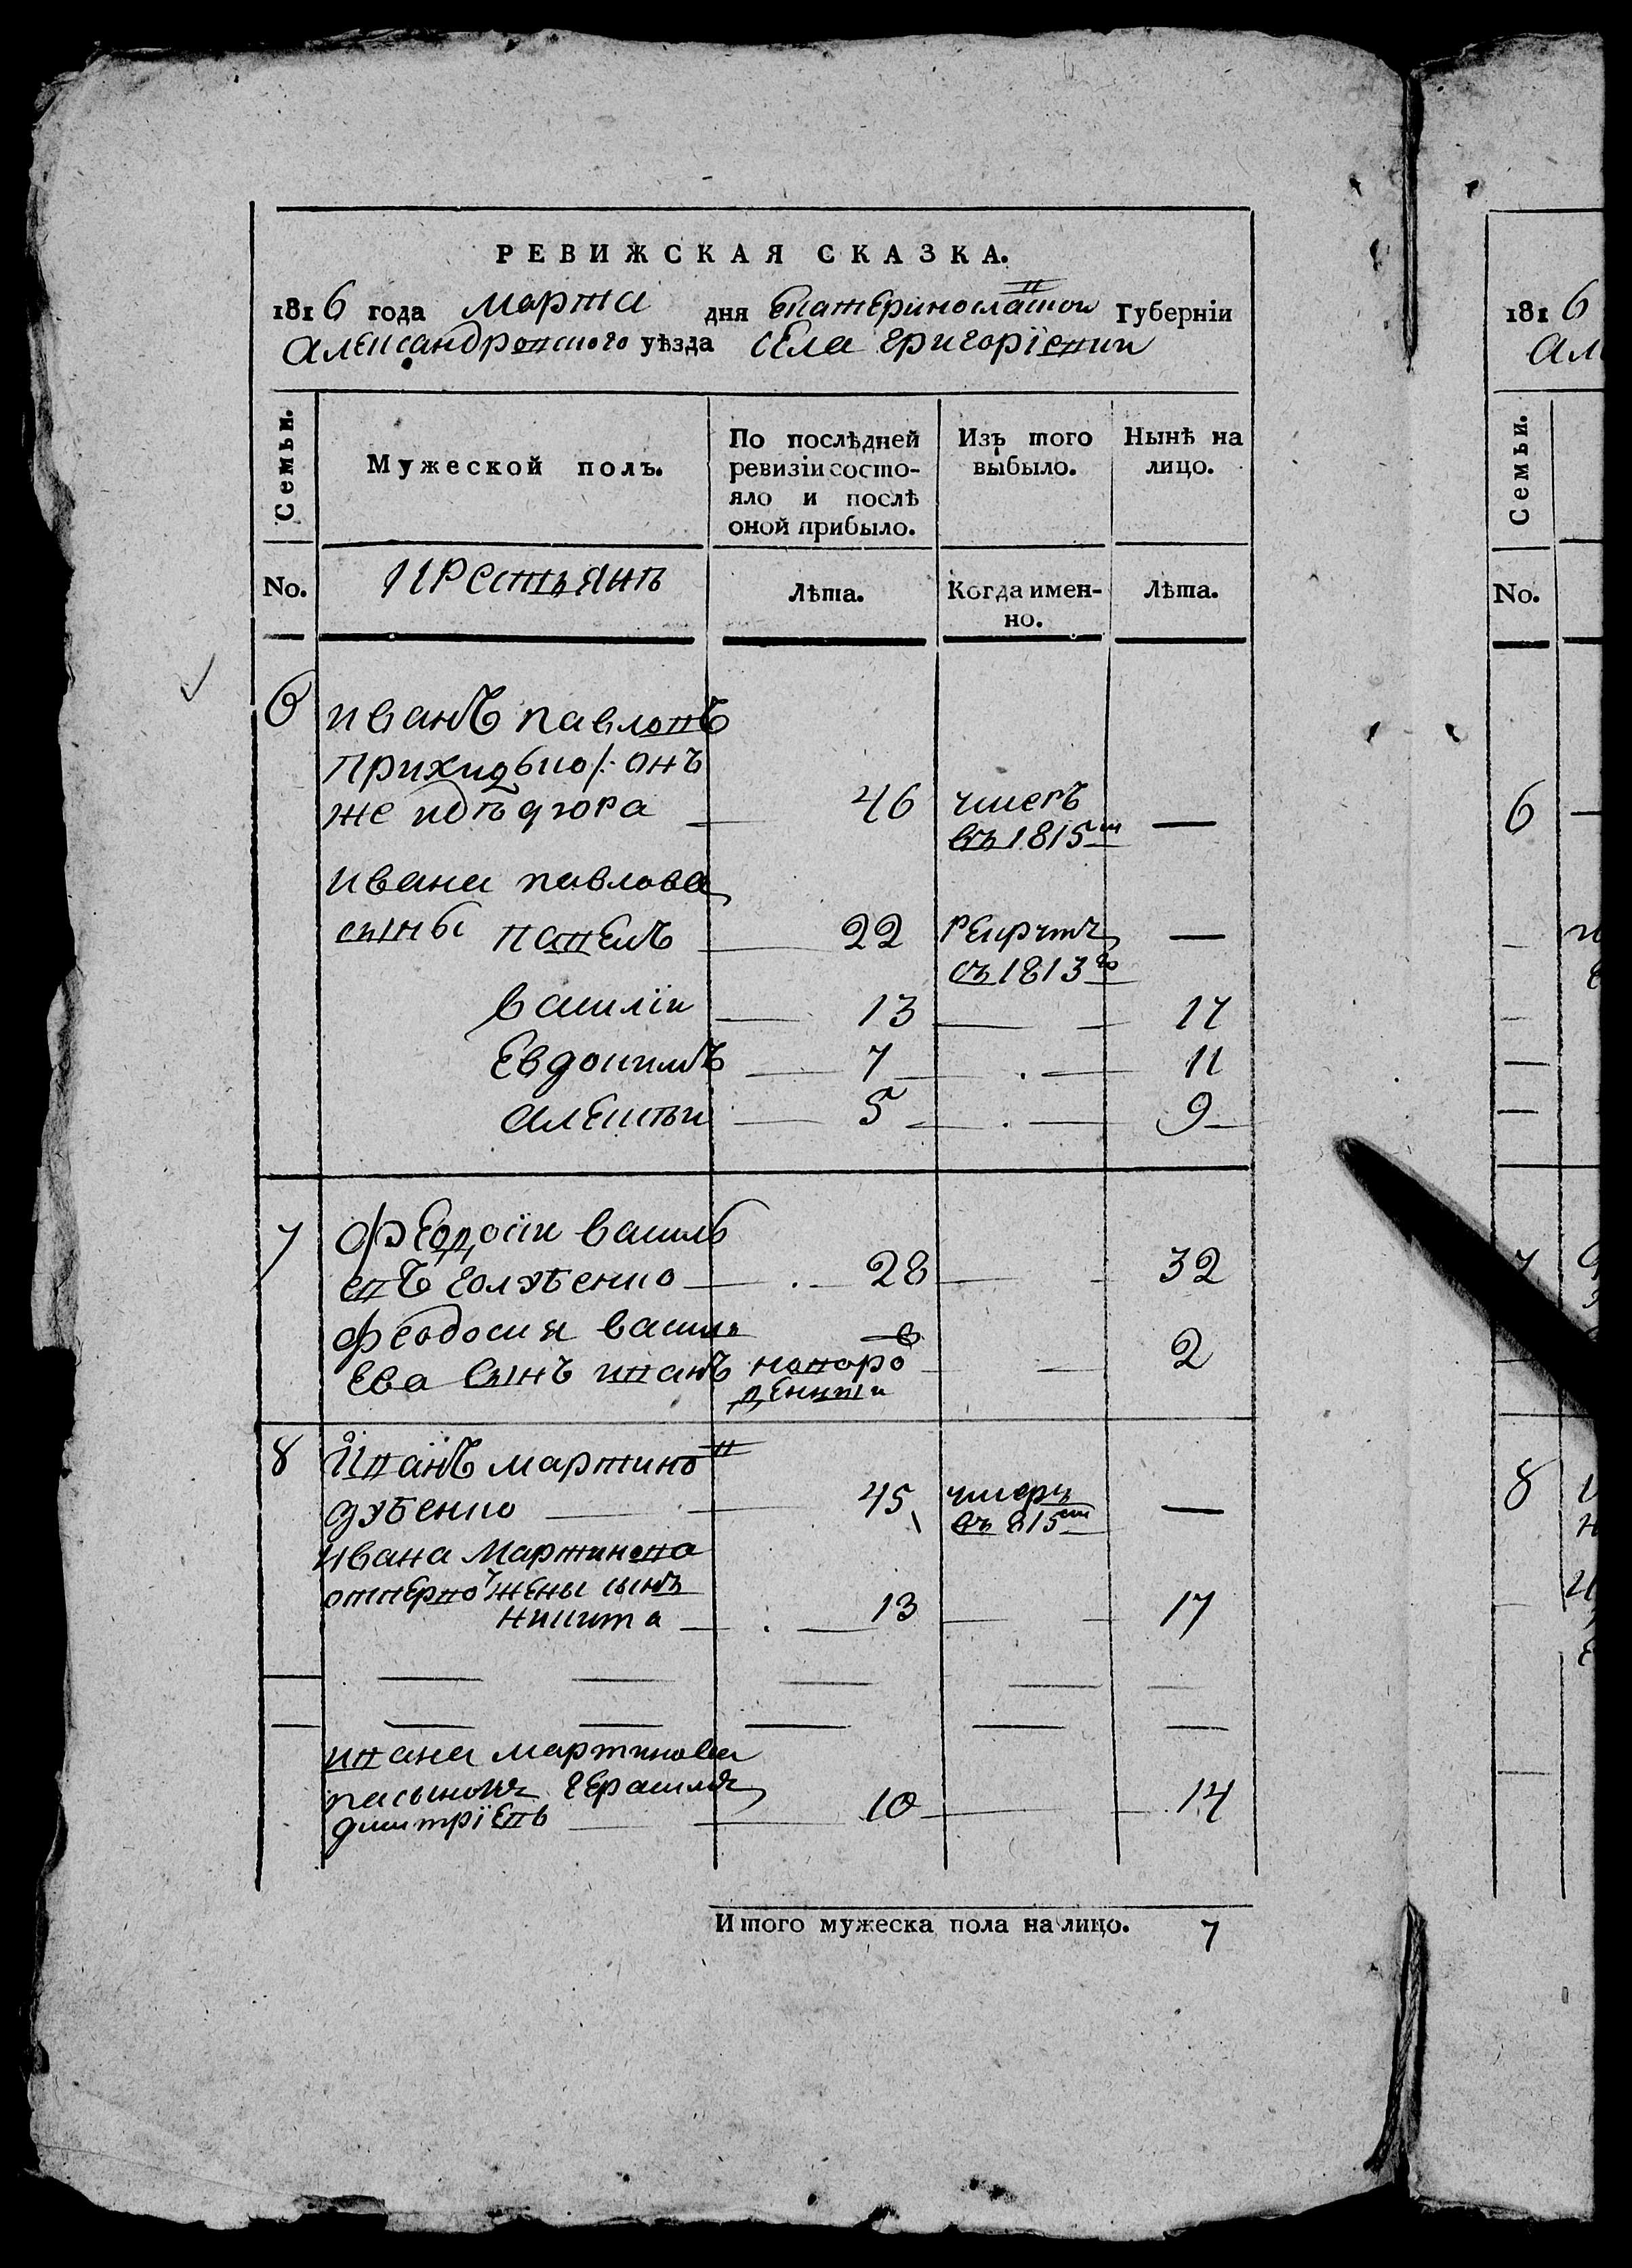 РЕВИЖСКАЯ СКАЗКА.
1816 года Марта дня Екатеринославской Губерніи
Александровского уѣзда села Григоріевки
Семьи.
Мужеской полъ.
По послѣдней ревизіи состо-
яло и послѣ
оной прибыло.
Изъ того
выбыло.
Нынѣ на
лицо.
No.
Крестьянъ
Лѣта.
Когда имен-
но.
Лѣта.
6 Иванъ Павловъ
же 46 умеръ —
въ 1815м
Ивана Павлова
сыны Павелъ 22 рекрутъ —
съ 1813го
Василіи 13 17
Евдокимъ 7 11
Алексѣи 5 9
7 Феодосіи Василь
евъ 28 32
Феодосия Василь
ева сынъ Иванъ новоро 2
жденныи
8 Иванъ Мартинов
45 умеръ —
въ 815м
Ивана Мартинова
от перво жены сынъ
Никита 13 17
Ивана Мартинова
пасынокъ Герасимъ
Дмитріевъ 10 14
Итого мужеска пола на лицо. 7
1816
Але
Семьи.
No.
6
8